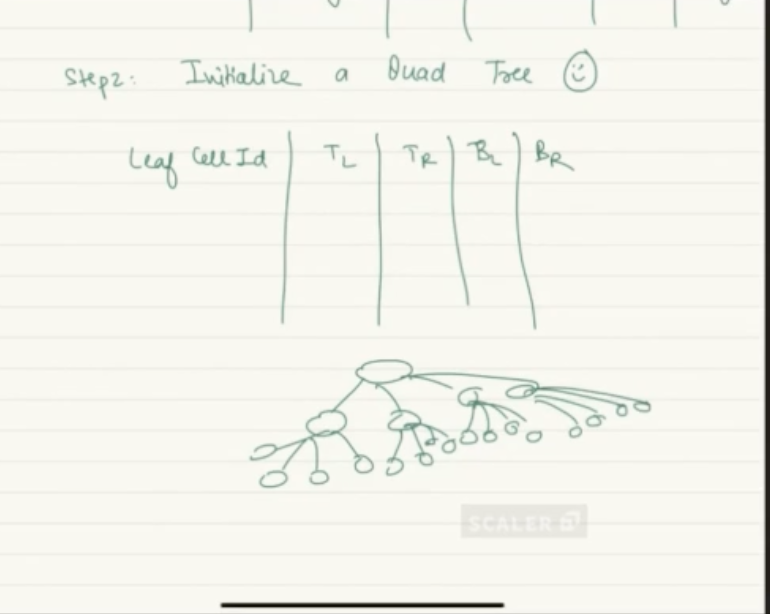 Step2: Initialize a Quad Tree
Leaf Cell Id TL TR BL BR
SCALER